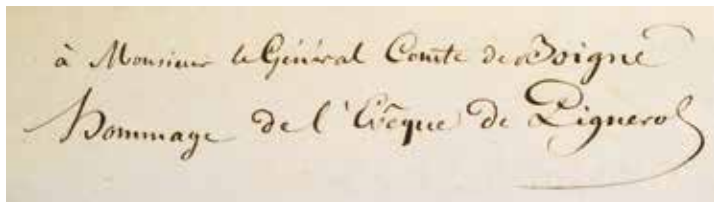 à Monsieur le Général Comte de Boigne
Hommage de l'Evêque de Pignerol